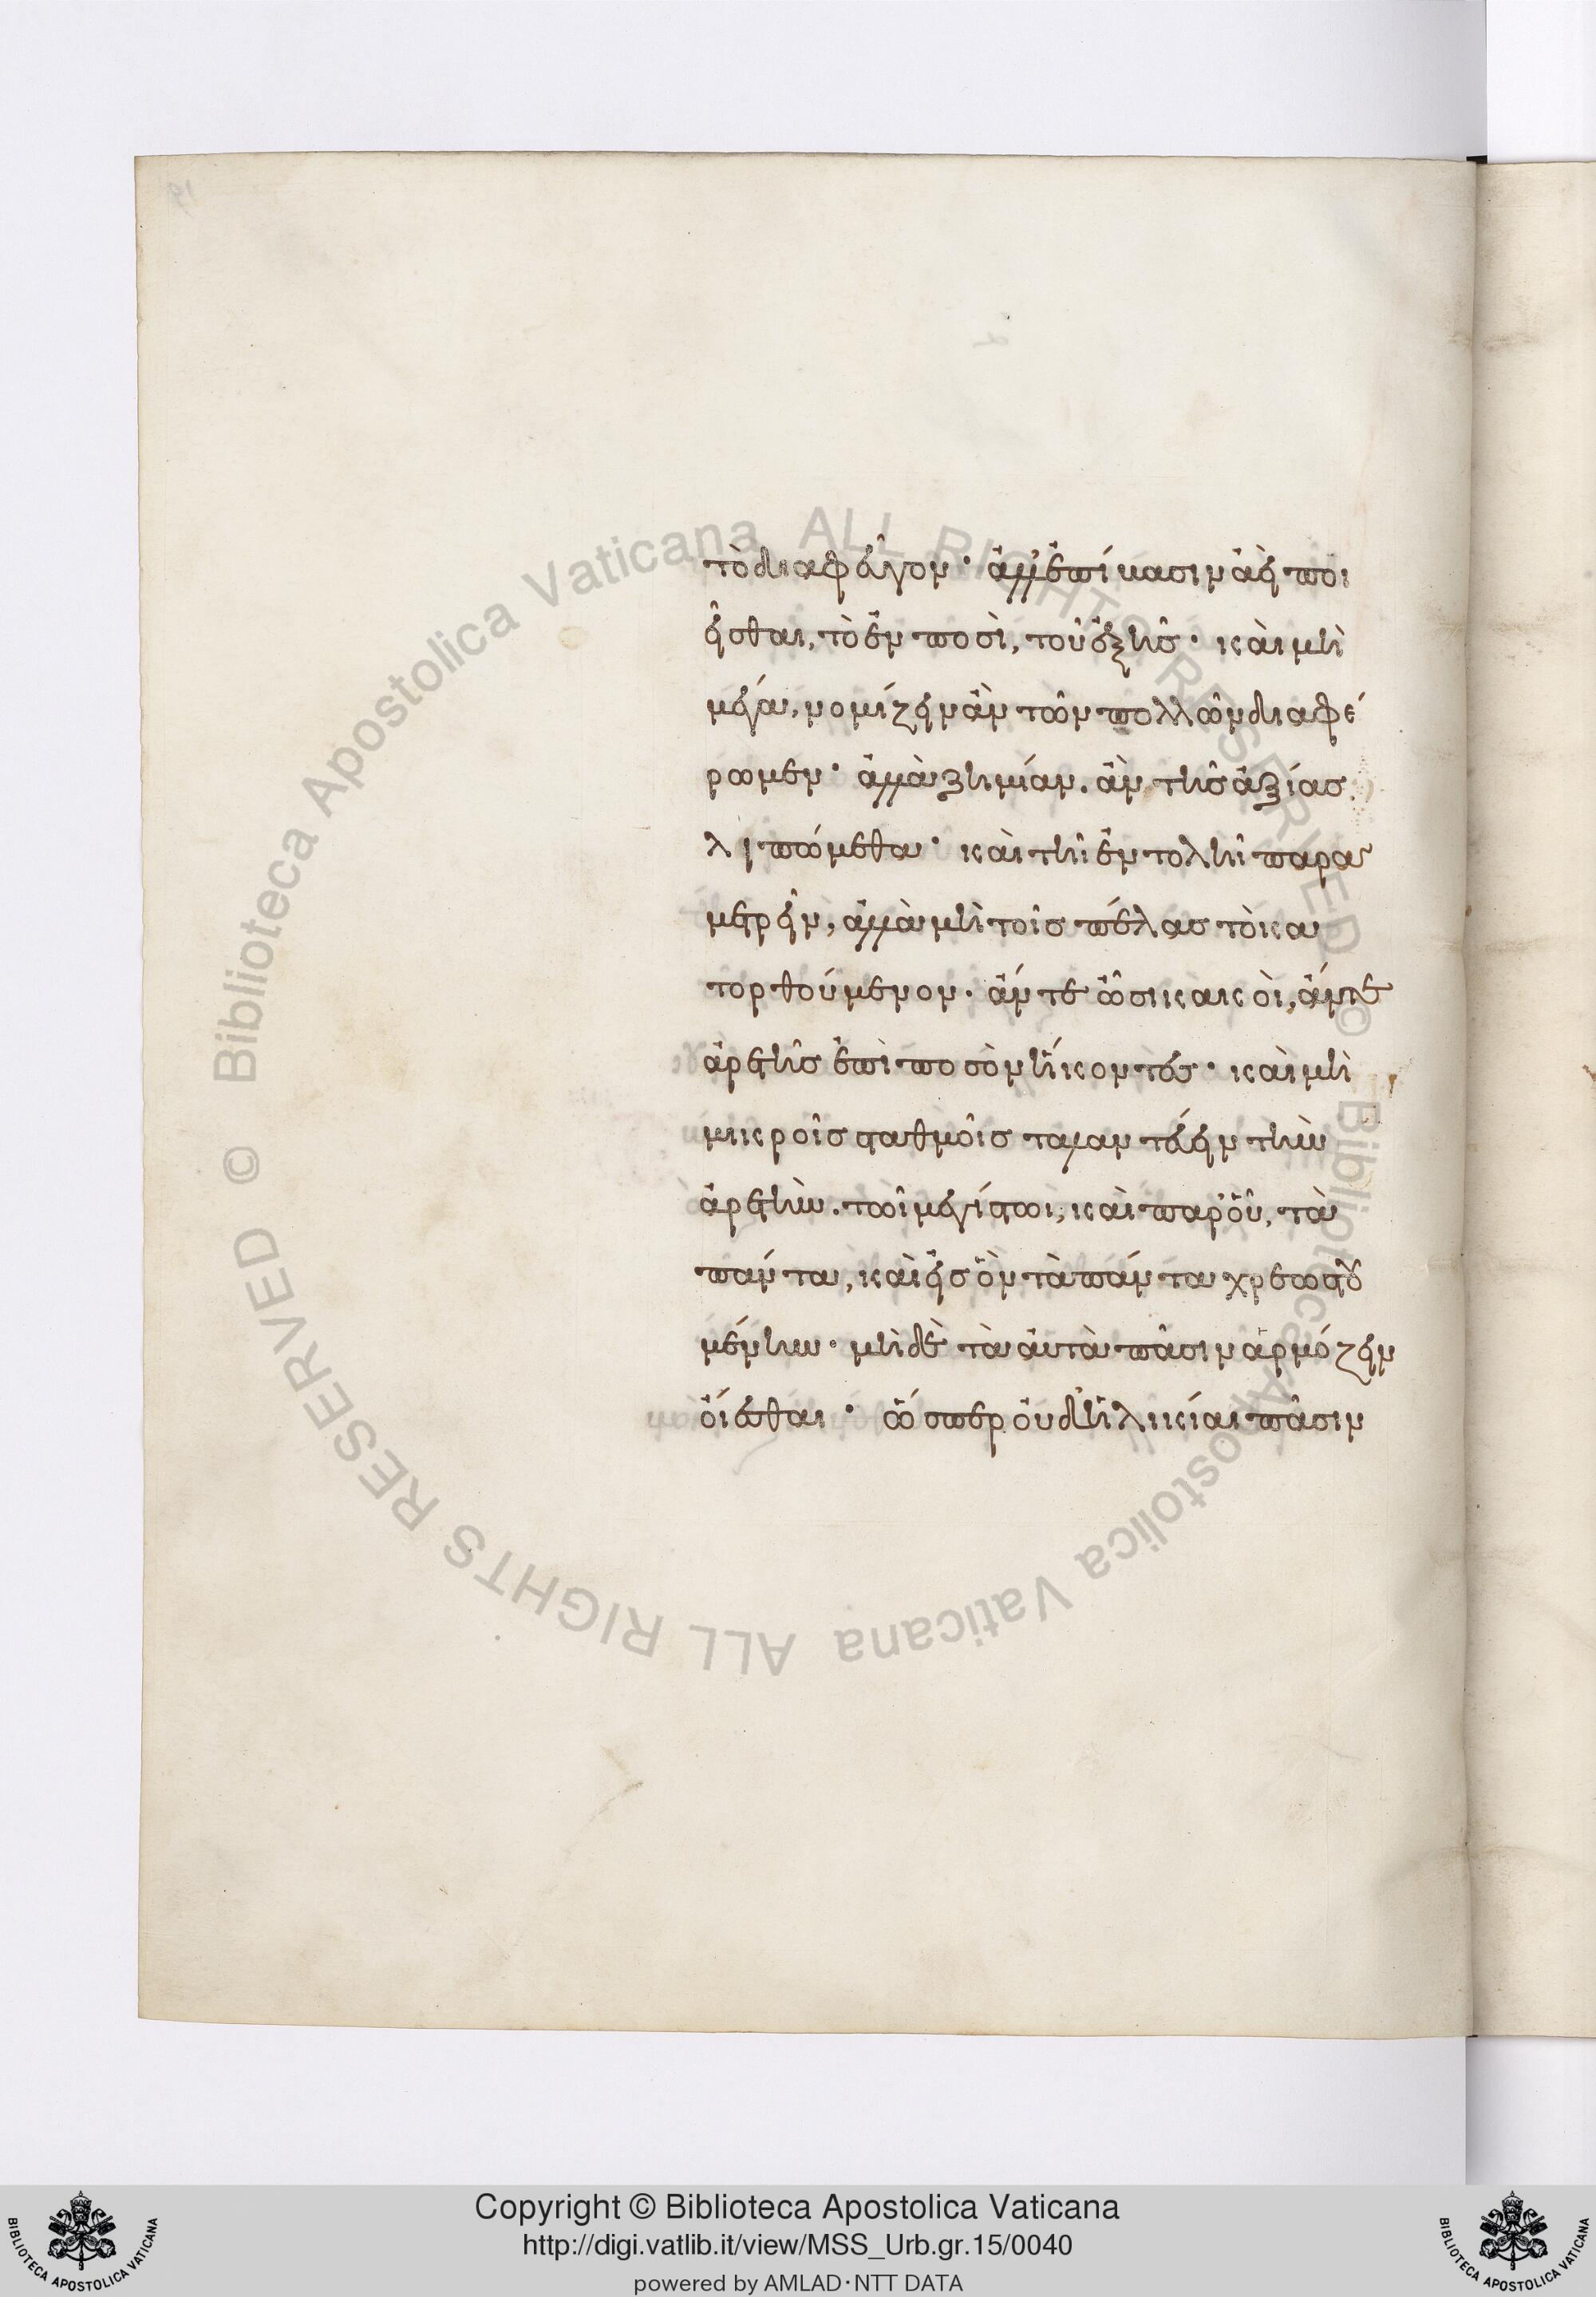 τὸ διαφεῦγον· ἀλλ' ἐπίκτασιν ἀεὶ ποι
εῖσθαι, τὸ ἐν ποσὶ, τοῦ ἑξῆς· καὶ μὴ
μέγα, νομίζειν ἂν τῶν πολλῶν διαφέ
ρωμεν· ἀλλὰ ζημίαν. ἂν τῆς ἀξίας
λιπώμεθα· καὶ τῆ ἐντολῆ παρα
μετρεῖν, ἀλλὰ μὴ τοῖς πέλας τὸ κα
τορθούμενον. ἄν τε ὦσι κακοὶ, ἄν τε
ἀρετῆς ἐπὶ ποσὸν ἥκοντες· καὶ μὴ
μικροῖς σταθμοῖς ταλαντεύειν τὴν
ἀρετὴν. τῶ μεγίστω, καὶ παρ' οὗ, τὰ
πάντα, καὶ εἰς ὃν τὰ πάντα χρεωστου
μένην· μὴ δὲ τὰ αὐτὰ πᾶσιν ἁρμόζειν
οἴεσθαι· ὥσπερ οὐδ' ἡλικίαι πᾶσιν
Biblioteca Apostolica Vaticana ALL RIGHTS RESERVED ©
Biblioteca Apostolica Vaticana ALL RIGHTS RESERVED ©
Copyright © Biblioteca Apostolica Vaticana
http://digi.vatlib.it/view/MSS_Urb.gr.15/0040
powered by AMLAD·NTT DATA
BIBLIOTECA APOSTOLICA VATICANA
BIBLIOTECA APOSTOLICA VATICANA